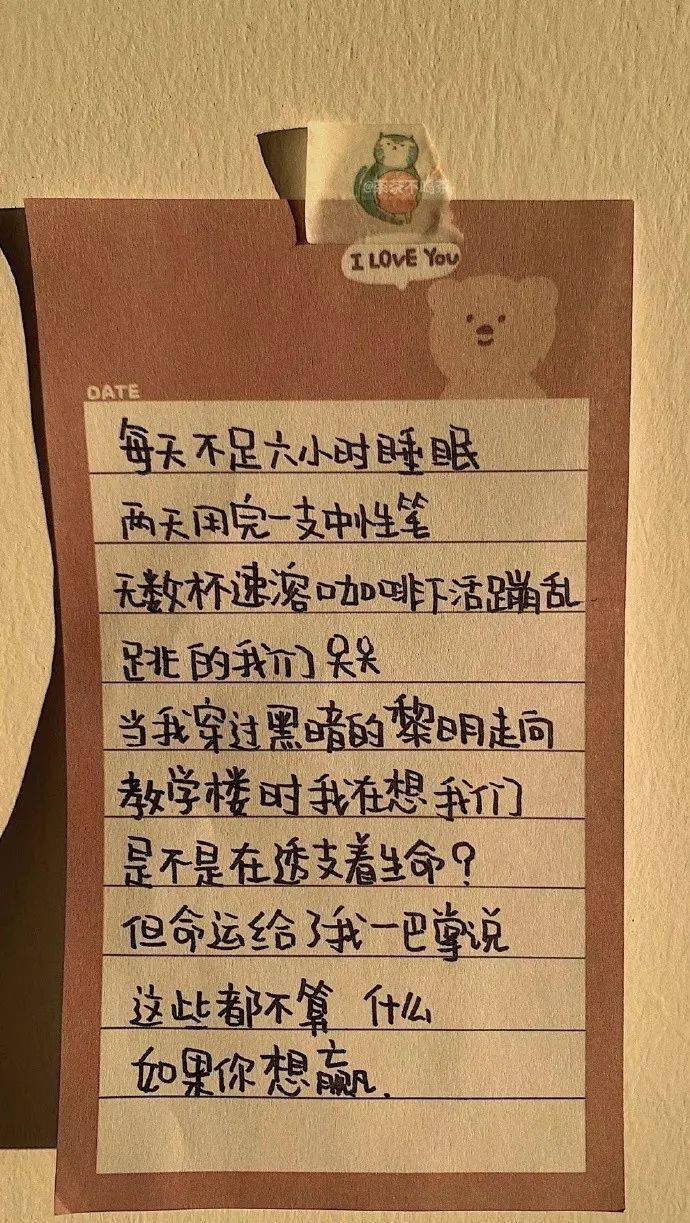 I LOVE YOU
DATE
每天不足六小时睡眠
两天用完一支中性笔
无数杯速溶咖啡下活蹦乱
跳的我们哭哭
当我穿过黑暗的黎明走向
教学楼时我在想我们
是不是在透支着生命？
但命运给了我一巴掌说
这些都不算 什么
如果你想赢.